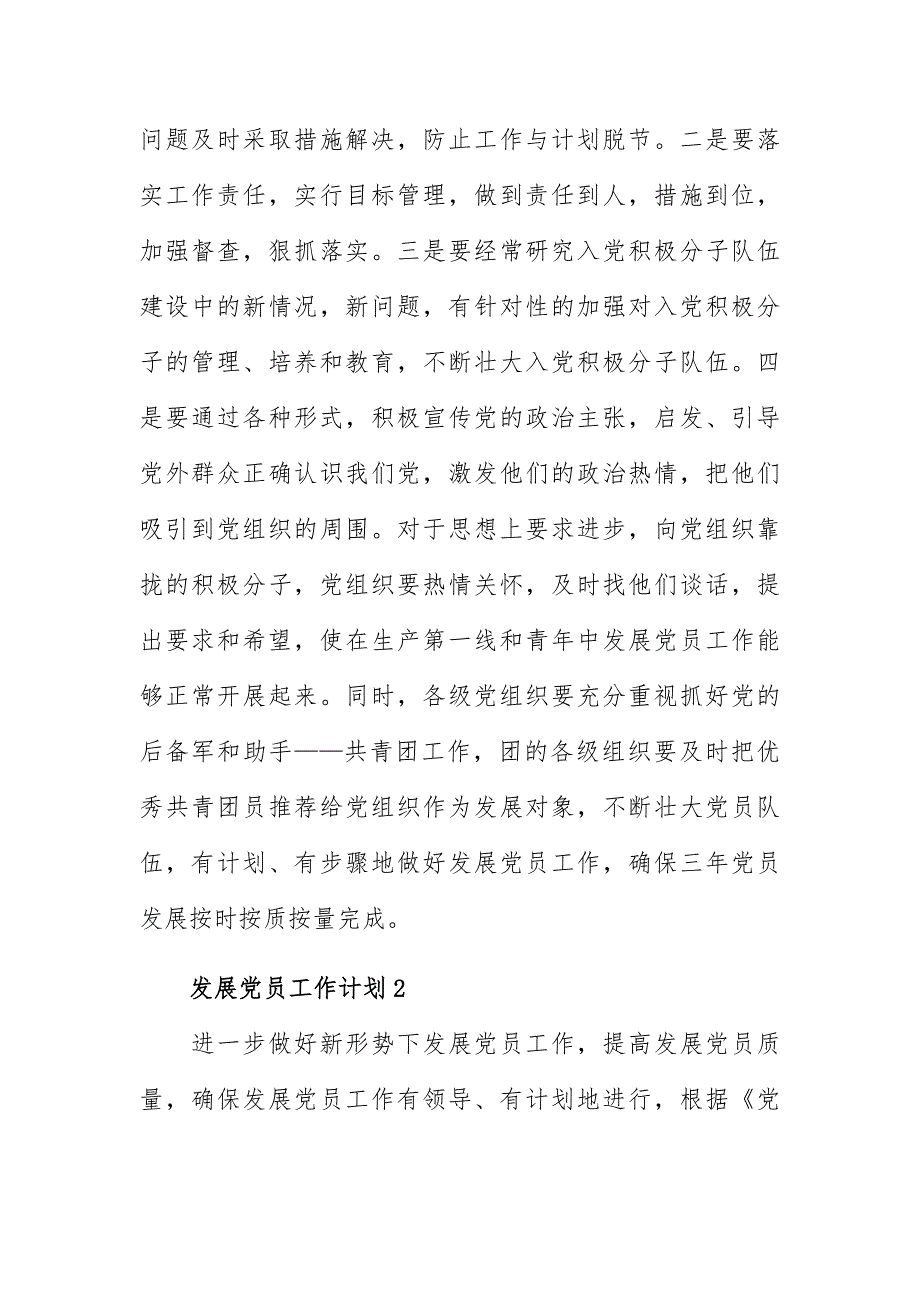 问题及时采取措施解决，防止工作与计划脱节。二是要落
实工作责任，实行目标管理，做到责任到人，措施到位，
加强督查，狠抓落实。三是要经常研究入党积极分子队伍
建设中的新情况，新问题，有针对性的加强对入党积极分
子的管理、培养和教育，不断壮大入党积极分子队伍。四
是要通过各种形式，积极宣传党的政治主张，启发、引导
党外群众正确认识我们党，激发他们的政治热情，把他们
吸引到党组织的周围。对于思想上要求进步，向党组织靠
拢的积极分子，党组织要热情关怀，及时找他们谈话，提
出要求和希望，使在生产第一线和青年中发展党员工作能
够正常开展起来。同时，各级党组织要充分重视抓好党的
后备军和助手——共青团工作，团的各级组织要及时把优
秀共青团员推荐给党组织作为发展对象，不断壮大党员队
伍，有计划、有步骤地做好发展党员工作，确保三年党员
发展按时按质按量完成。
发展党员工作计划2
进一步做好新形势下发展党员工作，提高发展党员质
量，确保发展党员工作有领导、有计划地进行，根据《党